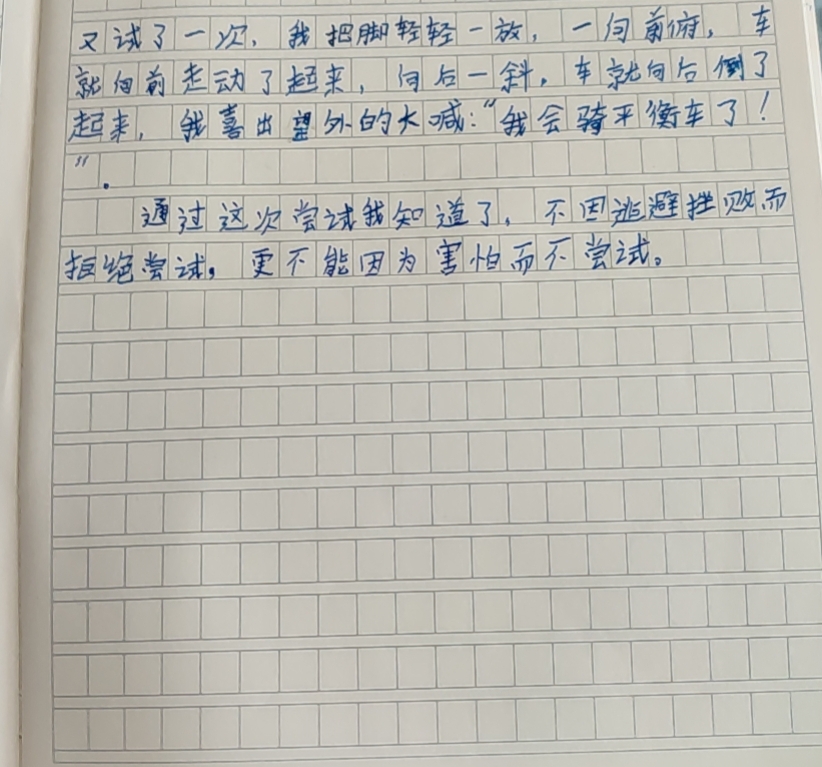 又试了一次，我把脚轻轻一放，一向前俯，车
就向前走动了起来，向后一斜，车就向后倒了
起来，我喜出望外的大喊：“我会骑平衡车了！
”.
通过这次尝试我知道了，不因逃避挫败而
拒绝尝试。更不能因为害怕而不尝试。